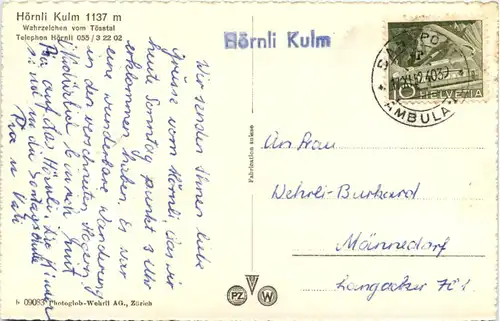 Hörnli Kulm 1137 m
Wahrzeichen vom Tösstal
Telephon Hörnli 055 / 3 22 02
Hörnli Kulm
Wir senden Ihnen liebe
Grüsse vom Hörnli, das wir
heute Sonntag punkt 2 Uhr
erklommen haben. Es war
eine wunderbare Wanderung
in den verschneiten Hügeln.
Pia auf das Hörnli, die
in die Sonntagsschule
Pia u. Vati
Fabrication suisse
HELVETIA
10
AMBULANT
An Frau
Wehrli-Burkard
Männedorf
PZ
W
b 09083 Photoglob-Wehrli AG., Zürich